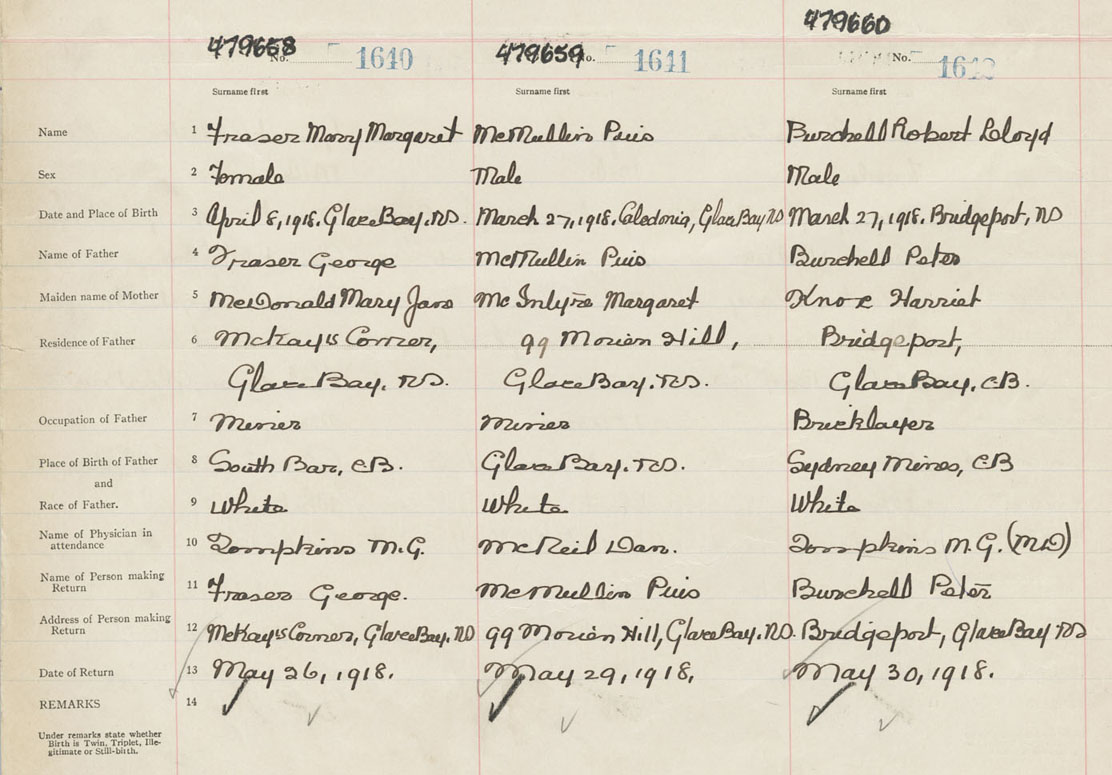 479658 479659 479660
No. 1640 No. 1641 No. 1642
Surname first Surname first Surname first
Name 1 Fraser Mary Margaret McMullin Pius Burchell Robert Lloyd
Sex 2 Female Male Male
Date and Place of Birth 3 April 8, 1918. Glace Bay. NS. March 27, 1918. Caledonia, Glace Bay NS March 27, 1918. Bridgeport, NS
Name of Father 4 Fraser George McMullin Pius Burchell Peter
Maiden name of Mother 5 McDonald Mary Jane McIntyre Margaret Knox Harriet
Residence of Father 6 McKay's Corner, 99 Morien Hill, Bridgeport,
Glace Bay. NS. Glace Bay. NS. Glace Bay, CB.
Occupation of Father 7 Miner Miner Bricklayer
Place of Birth of Father 8 South Bar, CB. Glace Bay. NS. Sydney Mines, CB
and
Race of Father. 9 White White White
Name of Physician in
attendance 10 Tompkins M.G. McNeil Dan. Tompkins M.G. (MD)
Name of Person making
Return 11 Fraser George. McMullin Pius Burchell Peter
Address of Person making
Return 12 McKay's Corner, Glace Bay. NS 99 Morien Hill, Glace Bay. NS. Bridgeport, Glace Bay NS
Date of Return 13 May 26, 1918. May 29, 1918. May 30, 1918.
REMARKS 14
Under remarks state whether
Birth is Twin, Triplet, Ille-
gitimate or Still-birth.